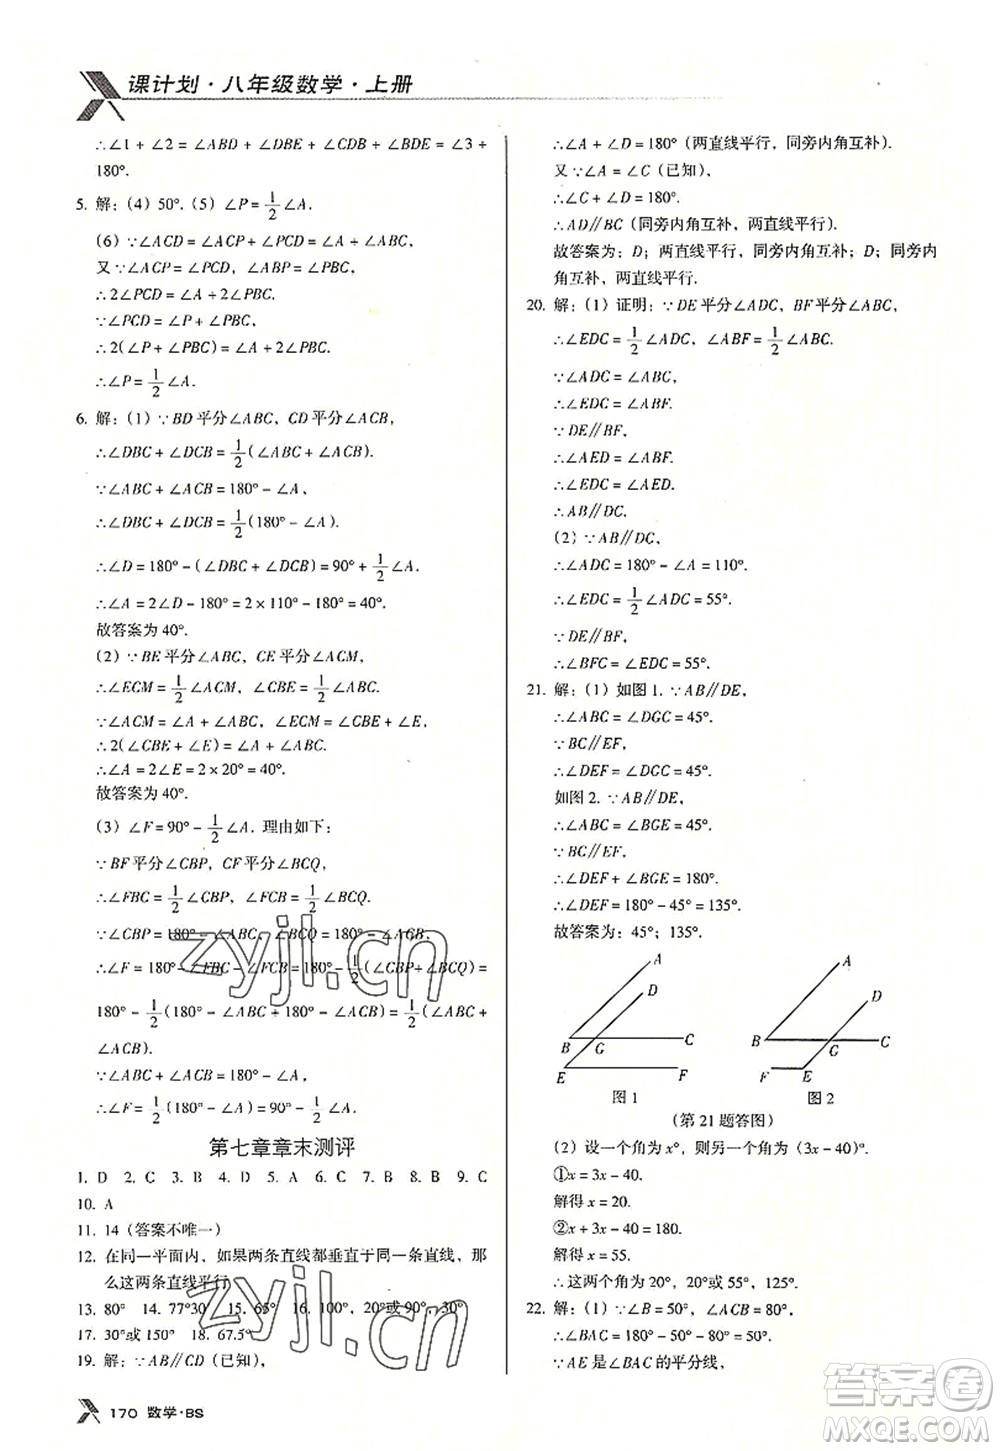 课计划·八年级数学·上册
∴∠1 + ∠2 = ∠ABD + ∠DBE + ∠ABD = ∠3 +
180°.
5. 解：(4) 50°. (5) ∠P = 1/2∠A.
(6) ∵∠ACD = ∠ACP + ∠PCD = ∠A + ∠ABC,
又∵∠ACP = ∠PCD, ∠ABP = ∠PBC,
∴2∠PCD = ∠A + 2∠PBC.
∵∠PCD = ∠P + ∠PBC,
∴2(∠P + ∠PBC) = ∠A + 2∠PBC.
∴∠P = 1/2∠A.
6. 解：(1) ∵BD 平分∠ABC, CD 平分∠ACB,
∴∠DBC + ∠DCB = 1/2(∠ABC + ∠ACB).
∵∠ABC + ∠ACB = 180° - ∠A,
∴∠DBC + ∠DCB = 1/2(180° - ∠A).
∴∠D = 180° - (∠DBC + ∠DCB) = 90° + 1/2∠A.
∴∠A = 2∠D - 180° = 2 × 110° - 180° = 40°.
故答案为 40°.
(2) ∵BE 平分∠ABC, CE 平分∠ACM,
∴∠ECM = 1/2∠ACM, ∠CBE = 1/2∠ABC.
∵∠ACM = ∠A + ∠ABC, ∠ECM = ∠CBE + ∠E,
∴2(∠CBE + ∠E) = ∠A + ∠ABC.
∴∠A = 2∠E = 2 × 20° = 40°.
故答案为 40°.
(3) ∠F = 90° - 1/2∠A. 理由如下：
∵BF 平分∠CBP, CF 平分∠BCQ,
∴∠FBC = 1/2∠CBP, ∠FCB = 1/2∠BCQ.
∵∠CBP = 180° - ∠ABC, ∠BCQ = 180° - ∠ACB,
∴∠F = 180° - ∠FBC - ∠FCB = 180° - 1/2(∠CBP + ∠BCQ) =
180° - 1/2(180° - ∠ABC + 180° - ∠ACB) = 1/2(∠ABC +
∠ACB).
∵∠ABC + ∠ACB = 180° - ∠A,
∴∠F = 1/2(180° - ∠A) = 90° - 1/2∠A.
第七章章末测评
1. D 2. C 3. B 4. D 5. A 6. C 7. B 8. B 9. C
10. A
11. 14（答案不唯一）
12. 在同一平面内，如果两条直线都垂直于同一条直线，那
么这两条直线平行
13. 80° 14. 77°30′ 15. 65° 16. 100°, 20°或90°, 30°
17. 30°或 150° 18. 67.5°
19. 解：∵AB∥CD（已知），
170 数学·BS
∴∠A + ∠D = 180°（两直线平行，同旁内角互补）.
又∵∠A = ∠C（已知），
∴∠C + ∠D = 180°.
∴AD∥BC（同旁内角互补，两直线平行）.
故答案为：D；两直线平行，同旁内角互补；同旁内
角互补，两直线平行.
20. 解：(1) 证明：∵DE 平分∠ADC, BF 平分∠ABC,
∴∠EDC = 1/2∠ADC, ∠ABF = 1/2∠ABC.
∵∠ADC = ∠ABC,
∴∠EDC = ∠ABF.
∵DE∥BF,
∴∠AED = ∠ABF.
∴∠EDC = ∠AED.
∴AB∥DC.
(2) ∵AB∥DC,
∴∠ADC = 180° - ∠A = 110°.
∴∠EDC = 1/2∠ADC = 55°.
∵DE∥BF,
∴∠BFC = ∠EDC = 55°.
21. 解：(1) 如图 1. ∵AB∥DE,
∴∠ABC = ∠DGC = 45°.
∵BC∥EF,
∴∠DEF = ∠DGC = 45°.
如图 2. ∵AB∥DE,
∴∠ABC = ∠BGE = 45°.
∵BC∥EF,
∴∠DEF + ∠BGE = 180°.
∴∠DEF = 180° - 45° = 135°.
故答案为：45°；135°.
A D B G C E F
A D B G C F E
图 1 图 2
（第 21 题答图）
(2) 设一个角为 x°，则另一个角为 (3x - 40)°.
①x = 3x - 40.
解得 x = 20.
②x + 3x - 40 = 180.
解得 x = 55.
∴这两个角为 20°, 20°或 55°, 125°.
22. 解：(1) ∵∠B = 50°, ∠ACB = 80°,
∴∠BAC = 180° - 50° - 80° = 50°.
∵AE 是∠BAC 的平分线,
zyjl.cn
zyjl.cn
答案圈
MXQE.COM